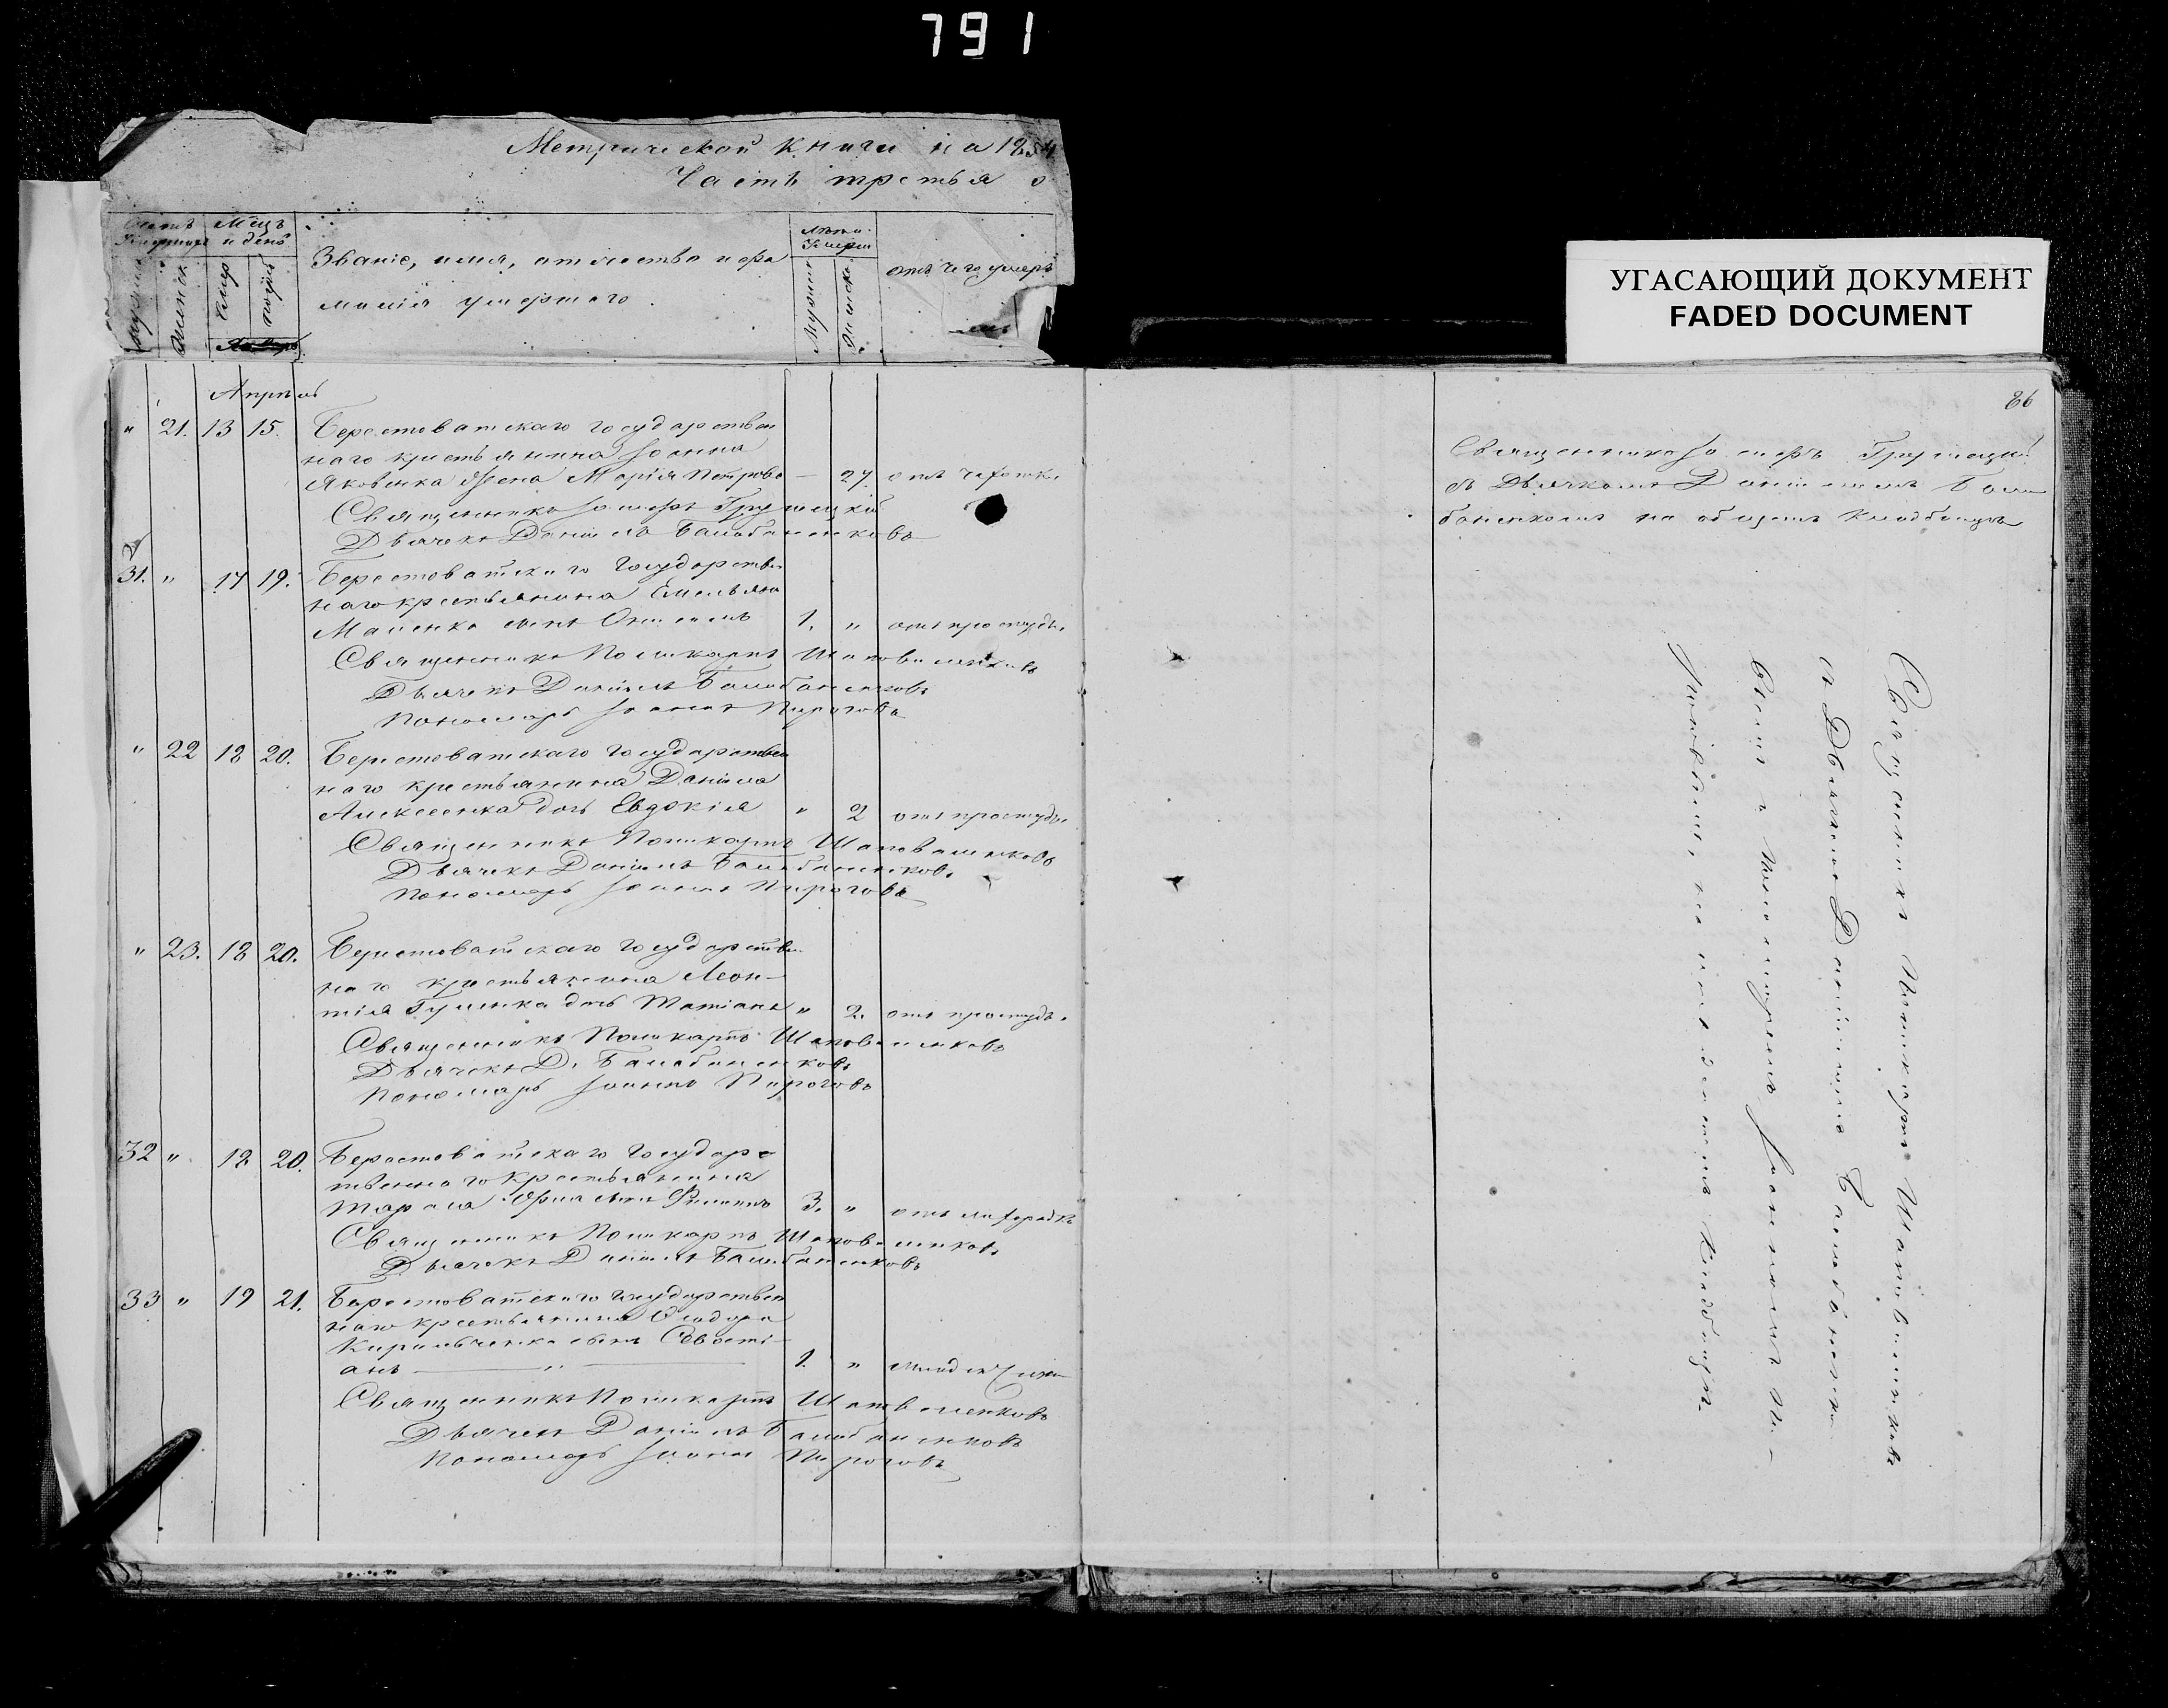 791
Метрической Книги на 1854
Часть третья о
Счетъ Умершихъ
Мѣцъ и день
Званіе, имя, отчество и фа
милія умершаго.
Лѣта Умерш
отъ чего умеръ
УГАСАЮЩИЙ ДОКУМЕНТ
FADED DOCUMENT
86
Апрѣль
" 21. 13 15. Берестоватскаго государствен
наго крестьянина Іоанна
Яковенка жена Марія Петрова — 27. отъ чахотки
Священникъ Іосифъ Грушецкій
Дьячекъ Даніилъ Балабаненковъ
31. " 17 19. Берестоватскаго государствен
наго крестьянина Емельяна
сынъ 1. " отъ простуды
Священникъ Поликарпъ Шаповаленковъ
Дьячекъ Даніилъ Балабаненковъ
Пономарь Іоаннъ Пироговъ
" 22 18 20. Берестоватскаго государствен
наго крестьянина Даніила
Алексеенка дочь Евдокія " 2 отъ простуды
Священникъ Поликарпъ Шаповаленковъ
Дьячекъ Даніилъ Балабаненковъ
Пономарь Іоаннъ Пироговъ
" 23. 18 20. Берестоватскаго государствен
наго крестьянина Леон-
тія дочь Татіана " 2. отъ простуды
Священникъ Поликарпъ Шаповаленковъ
Дьячекъ Д. Балабаненковъ
Пономарь Іоаннъ Пироговъ
32 " 18 20. Берестоватскаго государс
твеннаго крестьянина
Тараса сынъ Филиппъ 3. " отъ лихорадки
Священникъ Поликарпъ Шаповаленковъ
Дьячекъ Даніилъ Балабаненковъ
33 " 19 21. Берестоватскаго государствен
наго крестьянина Ѳеодора
Кирильченка сынъ Севасті-
анъ — " — 1. "
Священникъ Поликарпъ Шаповаленковъ
Дьячекъ Даніилъ Балабаненковъ
Пономарь Іоаннъ Пироговъ
Священникъ Іосифъ Грушецкій
съ Дьячкомъ Даніиломъ Бала
баненкомъ на общемъ кладбищѣ
Священникъ Поликарпъ Шаповаленковъ
съ Дьячкомъ Даніиломъ Балабаненко-
вымъ и Пономаремъ Іоанномъ Пи-
роговымъ, на кладбищѣ.